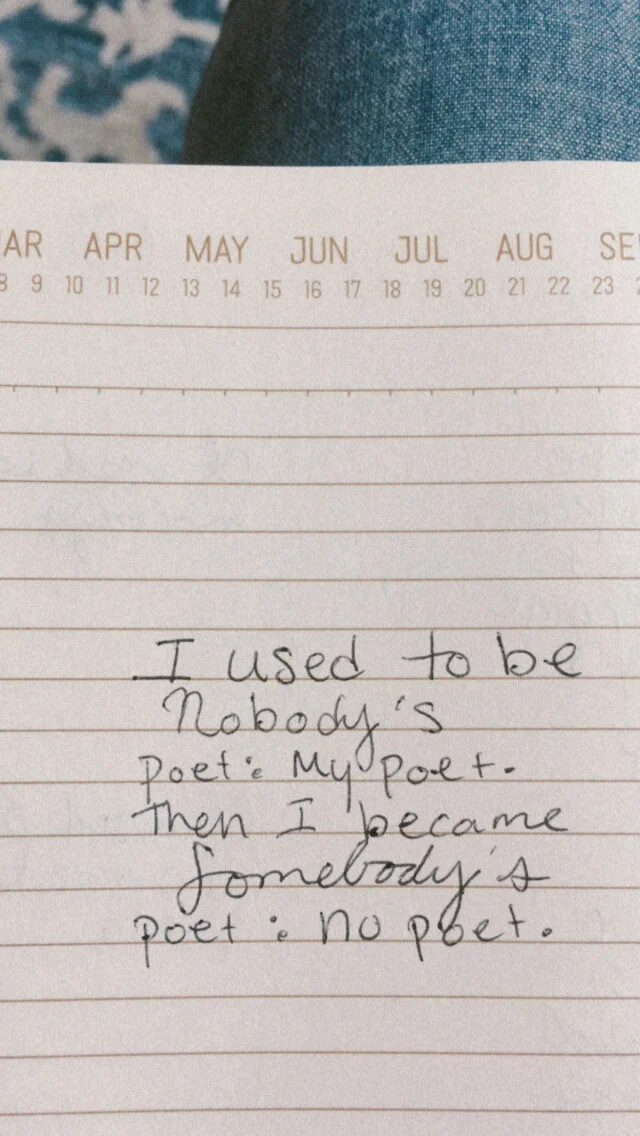 MAR APR MAY JUN JUL AUG SE
8 9 10 11 12 13 14 15 16 17 18 19 20 21 22 23
I used to be
Nobody's
poet: My poet.
Then I became
Somebody's
poet: no poet.